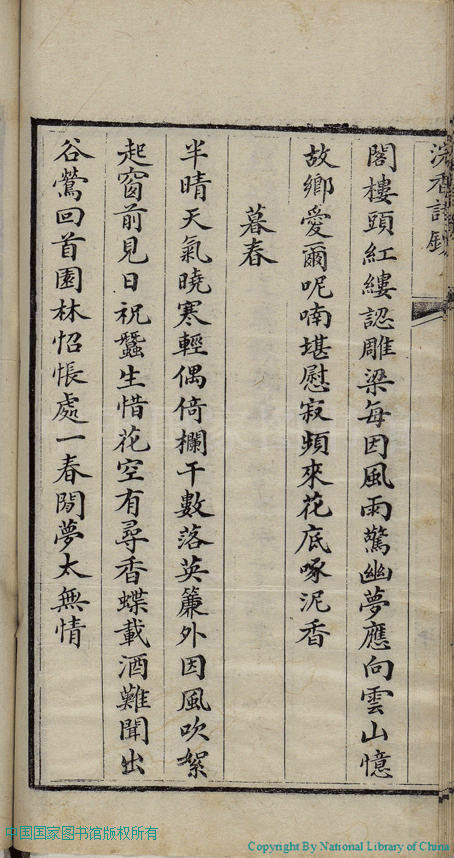 閣樓頭紅縷認雕梁每因風雨驚幽夢應向雲山憶
故鄉愛爾呢喃堪慰寂頻來花底啄泥香
暮春
半晴天氣曉寒輕偶倚欄干數落英簾外因風吹絮
起窗前見日祝蠶生惜花空有尋香蝶載酒難聞出
谷鶯回首園林怊悵處一春閒夢太無情
中国国家图书馆版权所有
Copyright By National Library of China